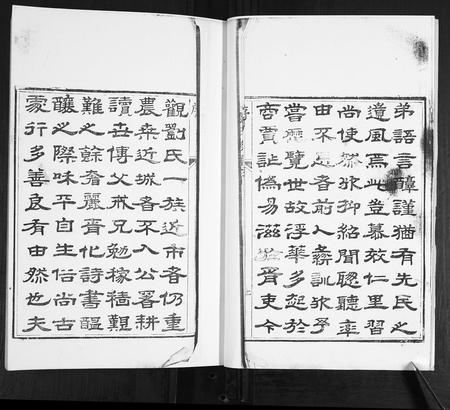 弟語言醇謹猶有先民之
遺風焉此豈慕效仁里習
尚使然抑紹聞聽聽率
由不遑者前人彝訓
嘗歷覽世故浮華多起於
商賈訟僞易滋胥吏今
觀劉氏一族近市者仍重
農桒近城者不入公署耕
讀世傳父戒兄勉稼穡艱
難之餘奢麗胥化詩書醞
釀之際味平自生俗尚古
家行多善良有由然也夫